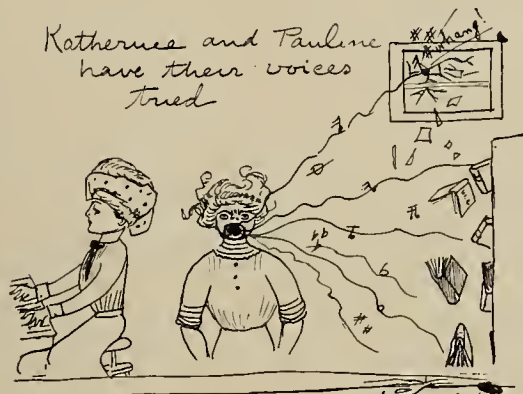 Katherine and Pauline
have their voices
tried